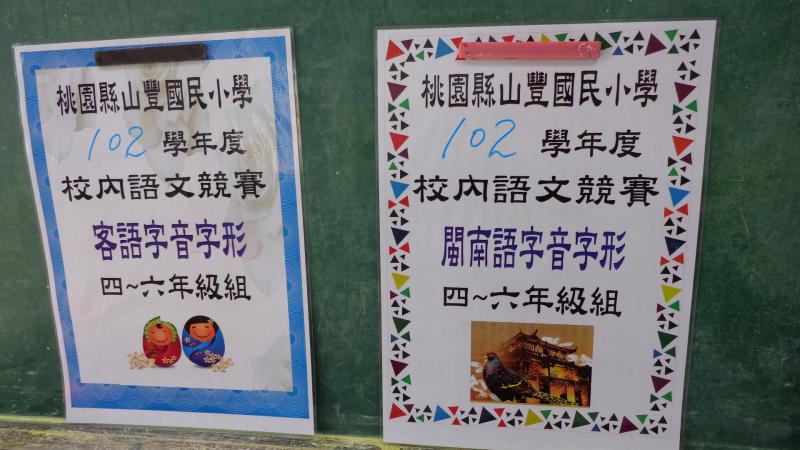 桃園縣山豐國民小學
102 學年度
校內語文競賽
客語字音字形
四~六年級組
桃園縣山豐國民小學
102 學年度
校內語文競賽
閩南語字音字形
四~六年級組